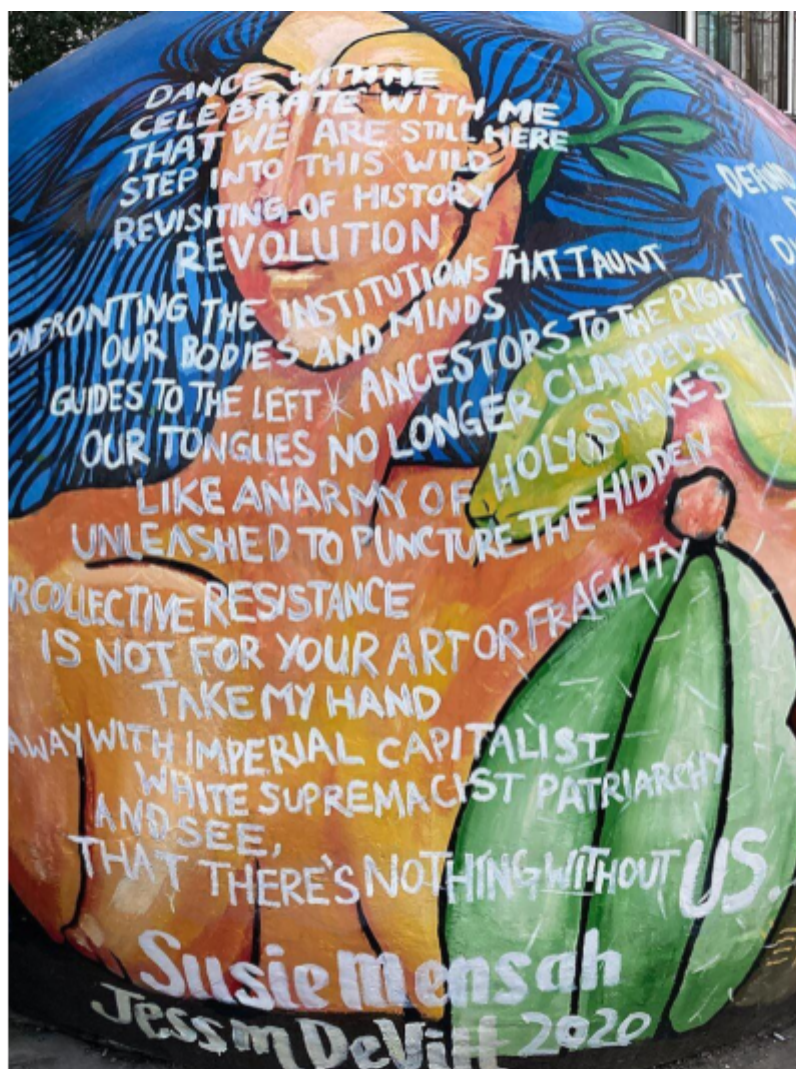 DANCE WITH ME
CELEBRATE WITH ME
THAT WE ARE STILL HERE
STEP INTO THIS WILD
REVISITING OF HISTORY
REVOLUTION
ONFRONTING THE INSTITUTIONS THAT TAUNT
OUR BODIES AND MINDS
GUIDES TO THE LEFT * ANCESTORS TO THE RIGHT
OUR TONGUES NO LONGER CLAMPED SHUT
LIKE AN ARMY OF HOLY SNAKES
UNLEASHED TO PUNCTURE THE HIDDEN
R COLLECTIVE RESISTANCE
IS NOT FOR YOUR ART OR FRAGILITY
TAKE MY HAND
AWAY WITH IMPERIAL CAPITALIST
WHITE SUPREMACIST PATRIARCHY
AND SEE,
THAT THERE'S NOTHING WITHOUT US.
Susie Mensah
Jess M DeVitt 2020
DEFUND